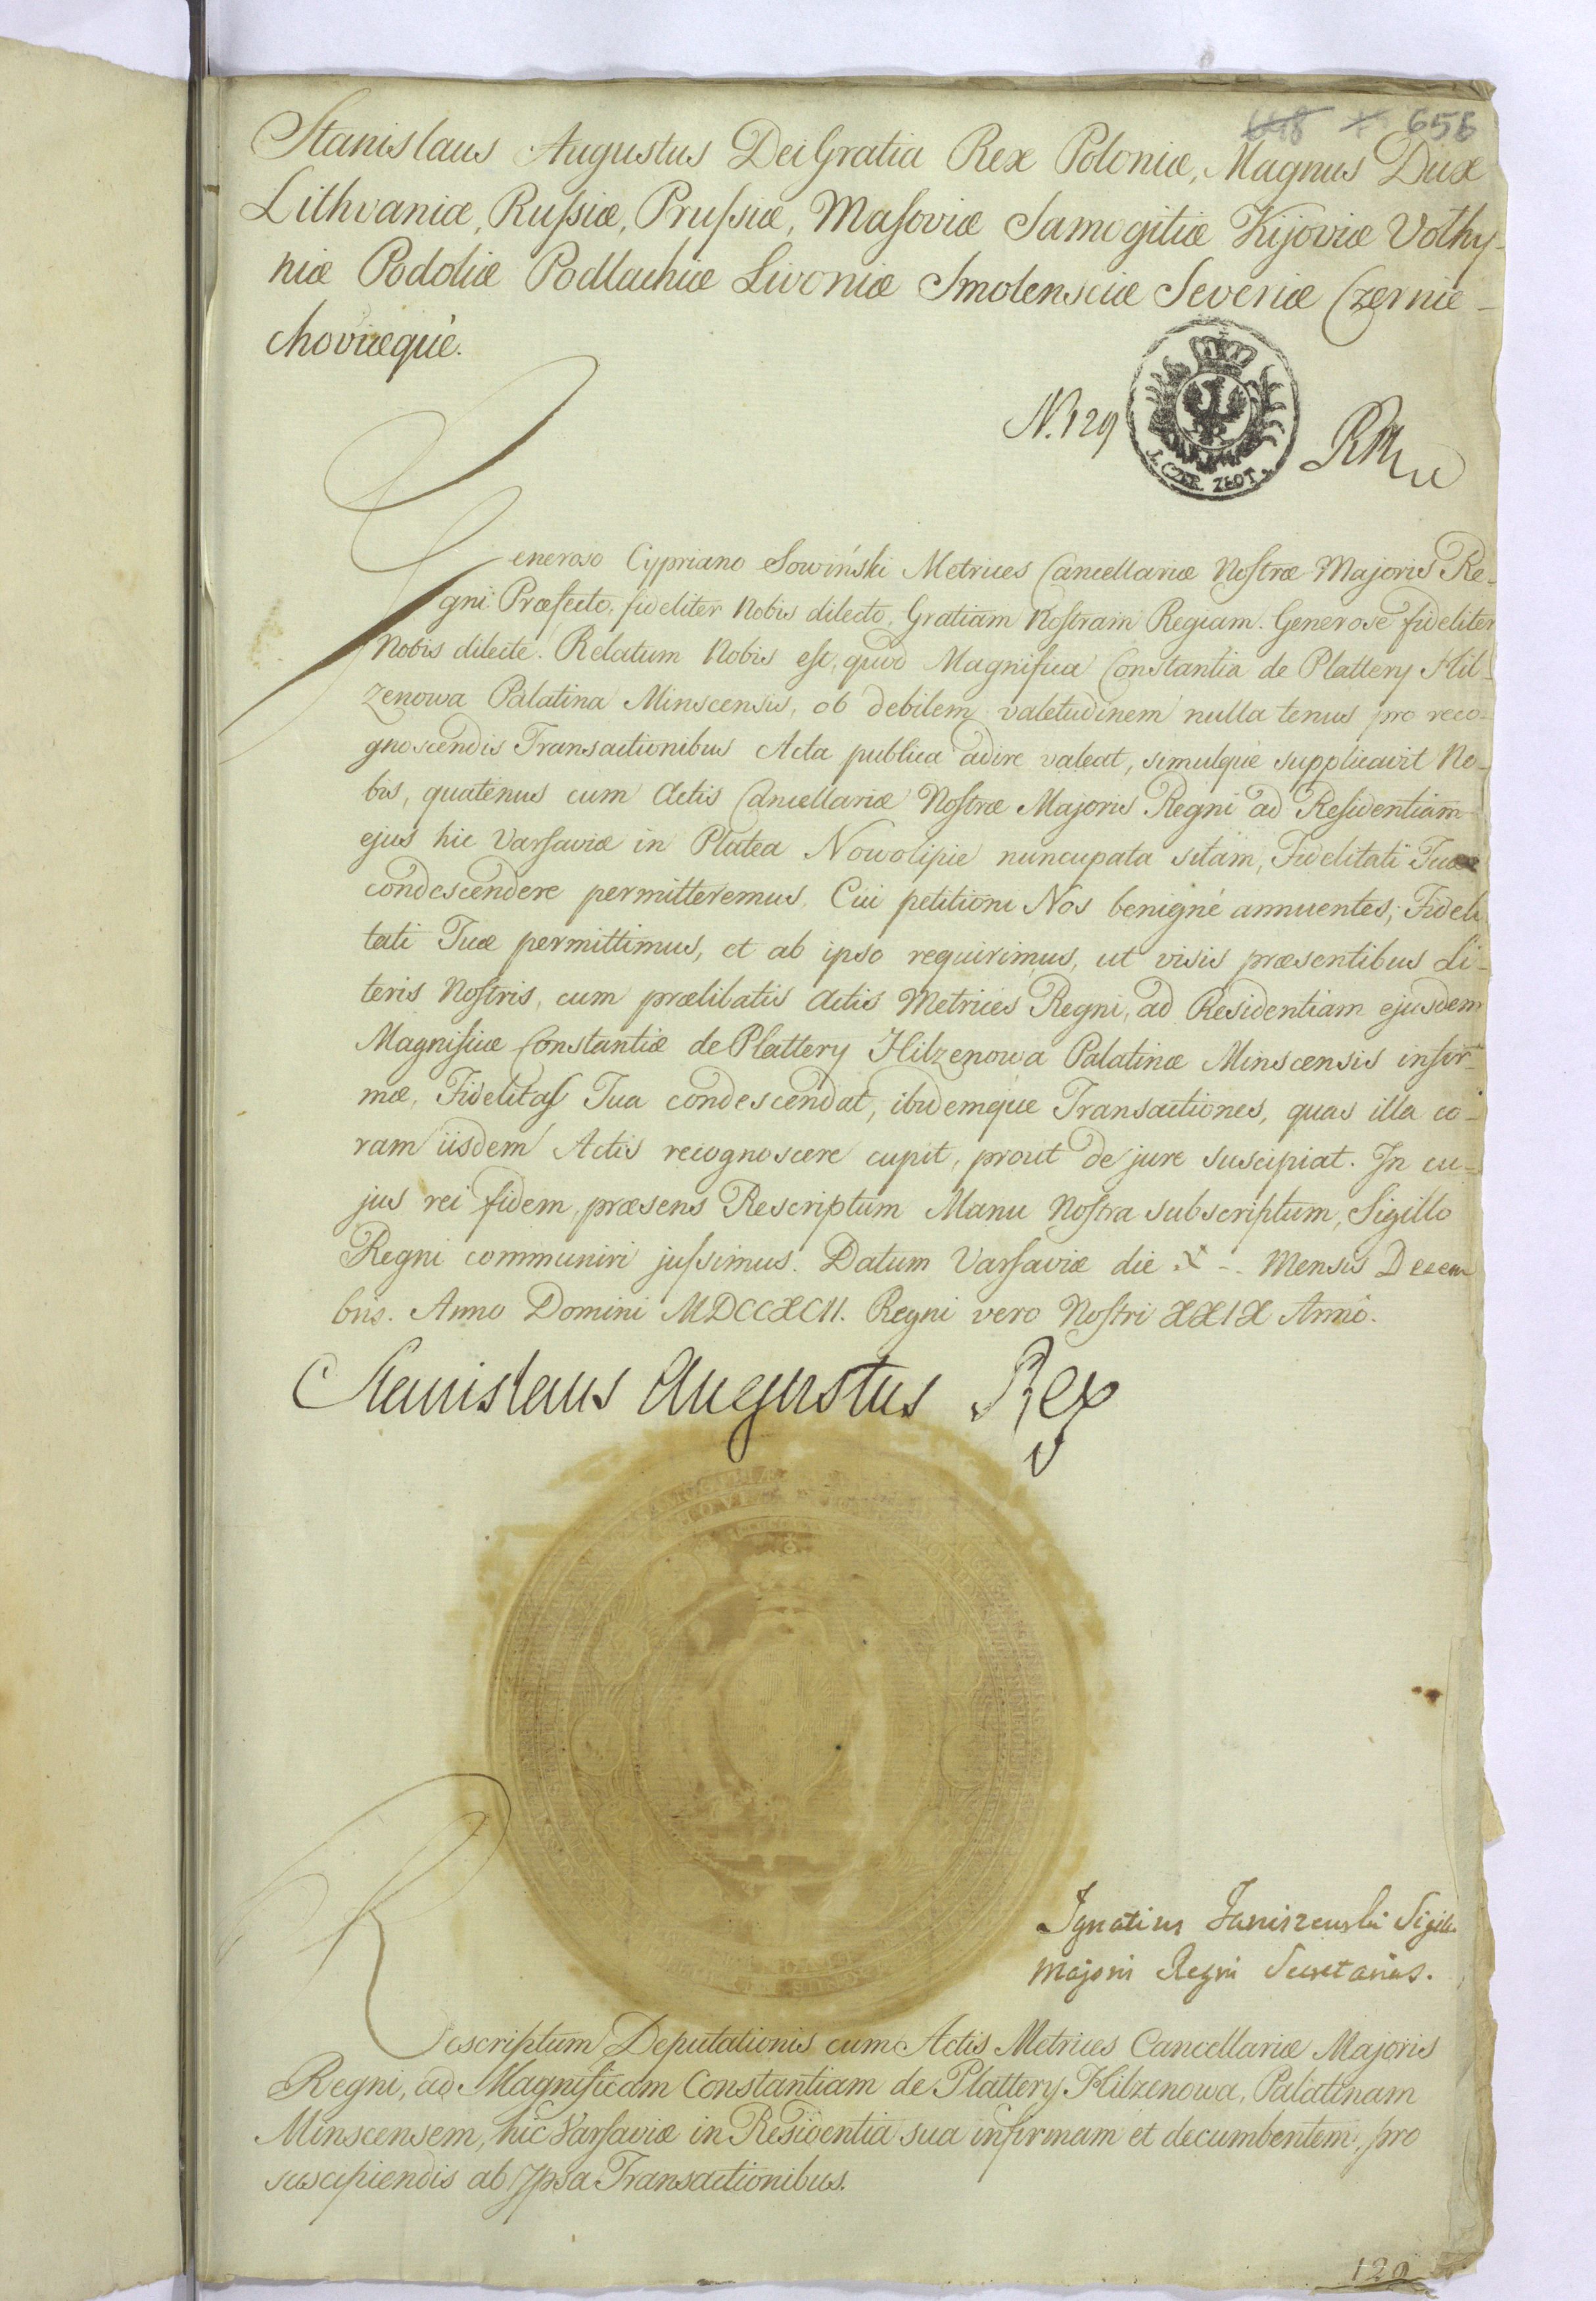 658
Stanislaus Augustus Dei Gratia Rex Poloniæ, Magnus Dux
Lithvaniæ, Rußiæ, Prußiæ, Masoviæ Samogitiæ Kijoviæ Volhy-
niæ Podoliæ Podlachiæ Livoniæ Smolensciæ Severiæ Czernie-
choviæqùe.
N. 129
CZER. ZŁOT.
Generoso Cypriano Sowiński Metrices Cancellariæ Nostræ Majoris Re-
gni Præfecto, fideliter Nobis dilecto, Gratiam Nostram Regiam. Generose fideliter
Nobis dilecte. Relatum Nobis est, quod Magnifica Constantia de Plattery Hil-
zenowa Palatina Minscensis, ob debilem valetudinem nulla tenus pro reco-
gnoscendis Transactionibus Acta publica adire valeat, simulqùe supplicavit No-
bis, quatenus cum Actis Cancellariæ Nostræ Majoris Regni ad Residentiam
ejus hic Varsaviæ in Platea Nowolipie nuncupata sitam, Fidelitati Tuæ
condescendere permitteremus. Cui petitioni Nos benigné annuentes, Fideli
tati Tuæ permittimus, et ab ipso requirimus, ut visis præsentibus Li-
teris Nostris, cum prælibatis Actis Metrices Regni, ad Residentiam ejusdem
Magnificæ Constantiæ de Plattery Hilzenowa Palatinæ Minscensis infir-
mæ, Fidelitas Tua condescendat, ibidemqùe Transactiones, quas illa co-
ram iisdem Actis recognoscere cupit, prout de jure suscipiat. In cu-
jus rei fidem, præsens Rescriptum Manu Nostra subscriptum, Sigillo
Regni communiri jußimus. Datum Varsaviæ die X - Mensis Decem
bris. Anno Domini MDCCXCII. Regni vero Nostri XXIX Anno.
Stanislaus Augustus Rex
Ignatius Janiszewski Sigilli
Majoris Regni Secretarius.
Rescriptum Deputationis cum Actis Metrices Cancellariæ Majoris
Regni, ad Magnificam Constantiam de Plattery Hilzenowa, Palatinam
Minscensem, hic Varsaviæ in Residentia sua infirmam et decumbentem, pro
suscipiendis ab Ipsa Transactionibus.
129